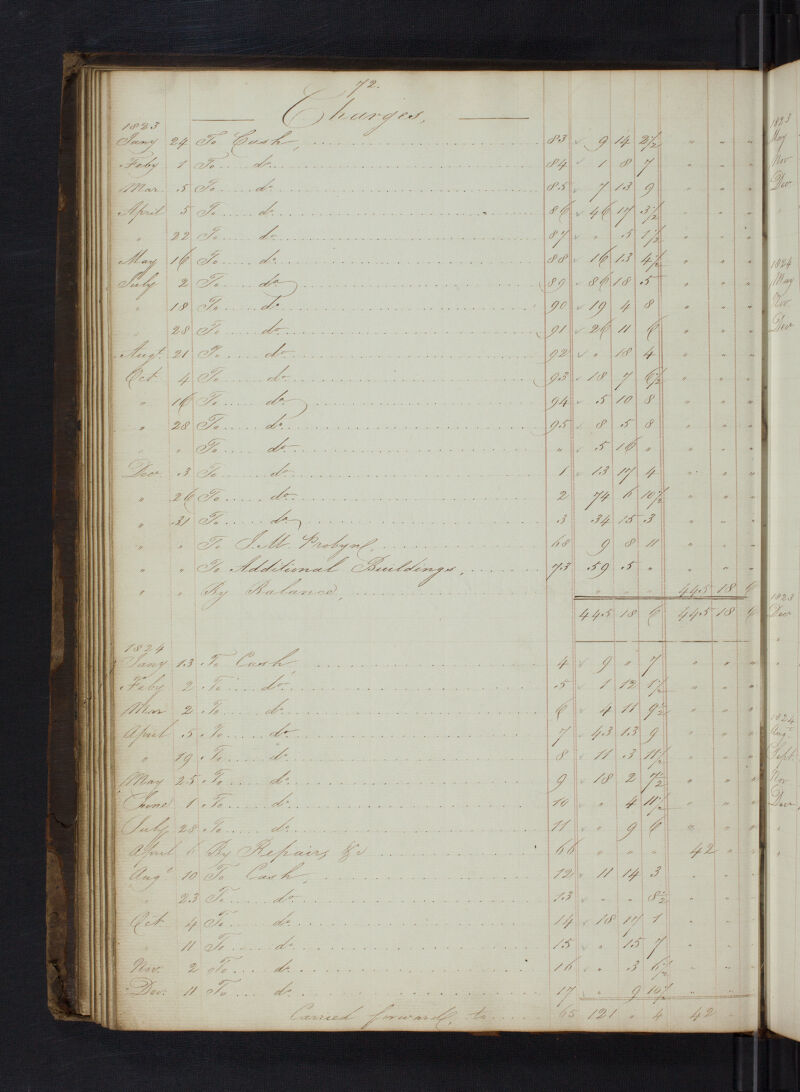 72.
Charges,
1823
Jany 24 To Cash, 83 9 14 2½ " " "
Feby 1 To do 84 1 8 7 " " "
Mar 5 To do 85 7 13 9 " " "
April 5 To do 86 46 17 3½ " " "
" 22 To do 87 " 5 1½ " " "
May 16 To do 88 16 13 4½ " " "
July 2 To do 89 86 18 5 " " "
" 18 To do 90 19 4 8 " " "
" 28 To do 91 26 11 6 " " "
Augt. 21 To do 92 " 18 4 " " "
Oct 4 To do 93 18 7 6½ " " "
" 16 To do 94 5 10 8 " " "
" 28 To do 95 8 5 8 " " "
" " To do " 5 16 " " " "
Dec 3 To do 1 13 17 4 " " "
" 26 To do 2 74 6 10½ " " "
" 31 To do 3 34 15 3 " " "
" " To J. M. Probyn, 68 9 8 11 " " "
" " To Additional Buildings, 73 59 5 " " " "
" " By Balance, " " " 445 18 6
445 18 6 445 18 6
1824
Jany 13 To Cash, 4 9 " 7 " " "
Feby 2 To do 5 1 12 1½ " " "
Mar 2 To do 6 4 11 9½ " " "
April 5 To do 7 43 13 9 " " "
" 19 To do 8 11 3 11½ " " "
May 25 To do 9 18 2 7½ " " "
June 1 To do 10 " 4 11½ " " "
July 28 To do 11 " 9 6 " " "
April 6 By Repairs &c 66 " " " 42 " "
Augt 10 To Cash, 12 11 14 3 " " "
" 23 To do 13 " " 8½ " " "
Oct 4 To do 14 18 17 1 " " "
" 11 To do 15 " 15 7 " " "
Nov. 2 To do 16 " 3 6½ " " "
Dec. 11 To do 17 " 9 10½ " " "
Carried forward, to 65 121 " 4 42 " "
1823
May
Nov
Dec
1824
May
Nov
Dec
1823
Dec
1824
Augt
Sept.
Nov
Dec